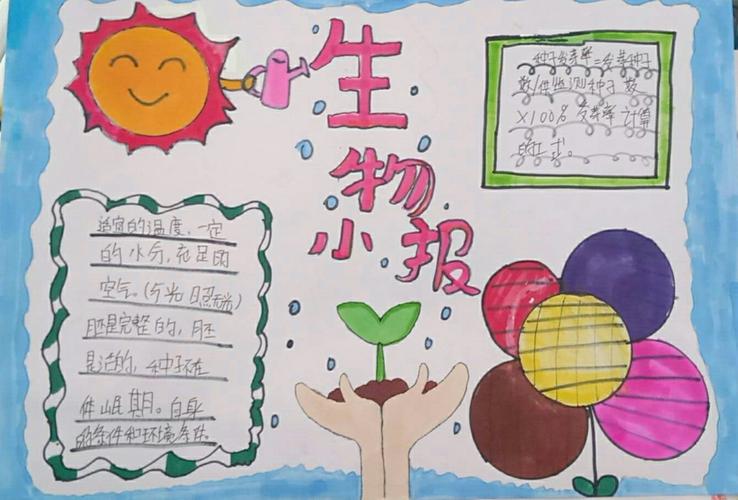 生
物
小报
种子发芽率=发芽种子
数/供监测种子数
×100% 发芽率计算
的工式。
适宜的温度,一定
的水分,充足的
空气。(与光照无
胚是完整的,胚
是活的,种子不在
休眠期。自身
的条件和环境条件。